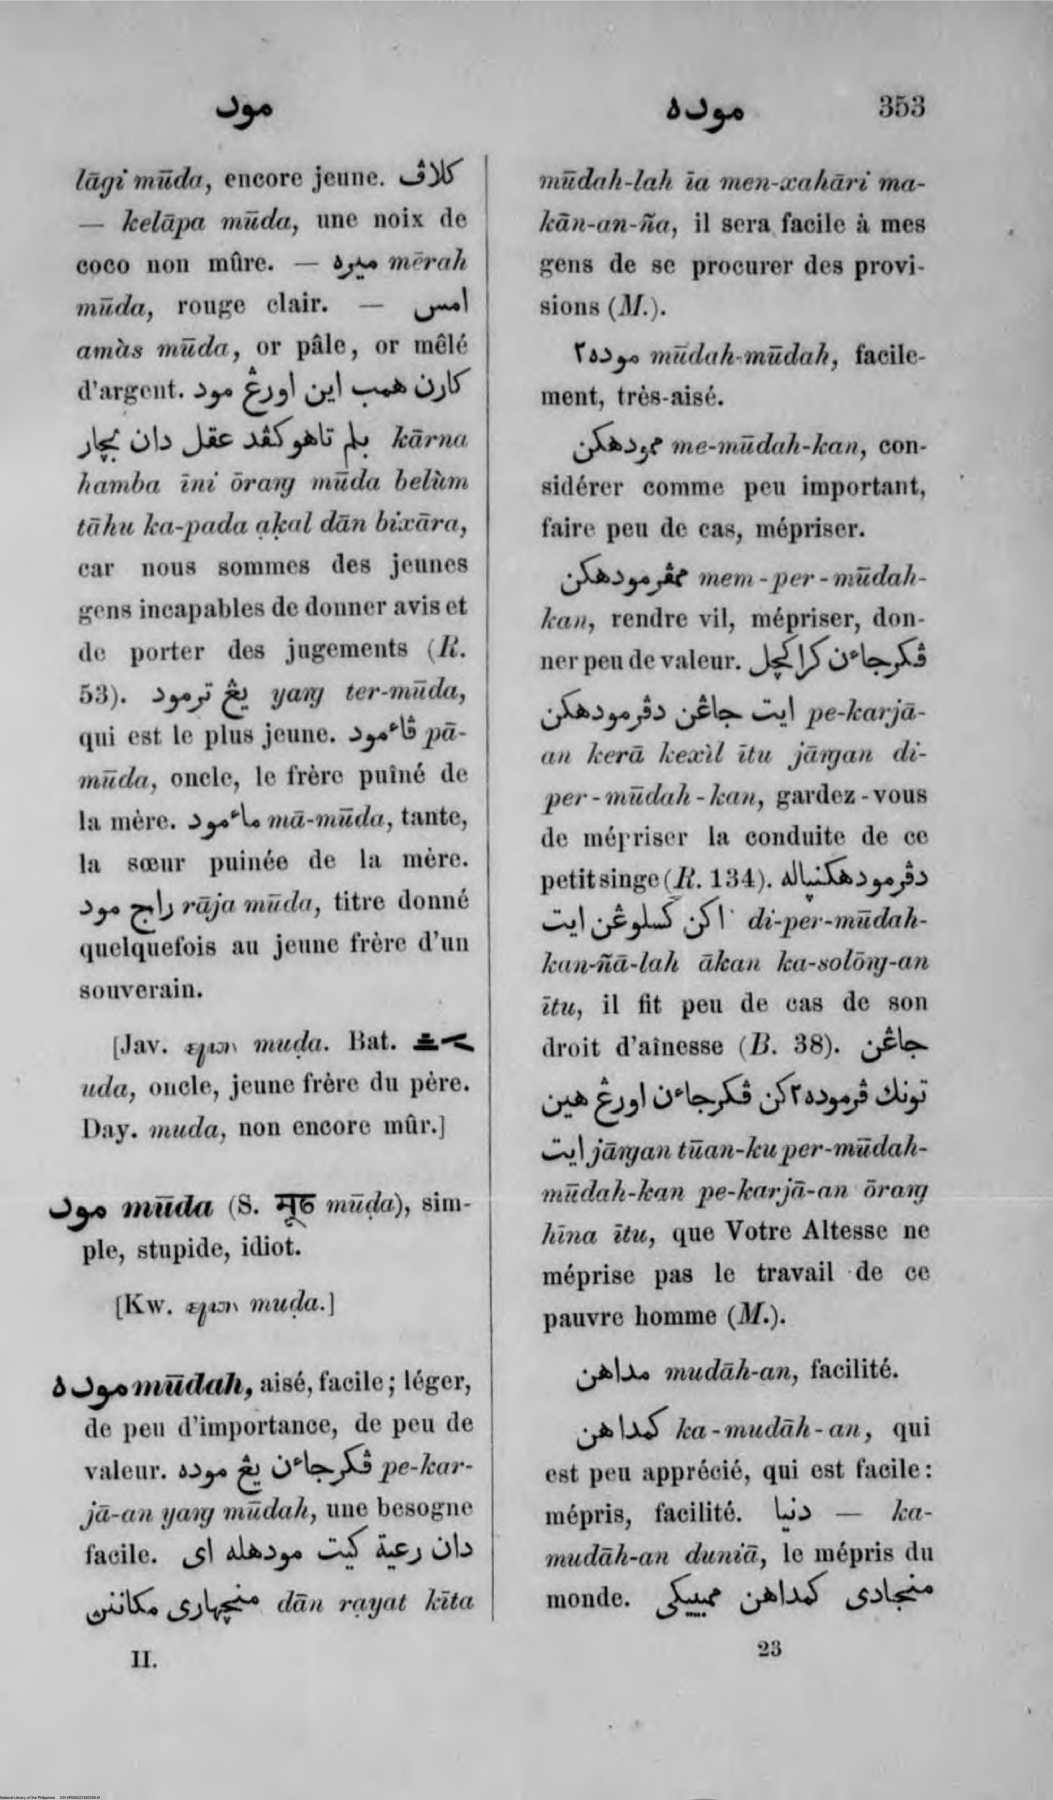 مود
موده 353
lāgi mūda, encore jeune. كلاڤ
— kelāpa mūda, une noix de
coco non mûre. — ميره mērah
mūda, rouge clair. — امس
amàs mūda, or pâle, or mêlé
d'argent. كارن همب اين اورڠ مود
بلم تاهو كڤد عقل دان بچار kārna
hamba īni ōraŋ mūda belùm
tāhu ka-pada ạḳal dān bixāra,
car nous sommes des jeunes
gens incapables de donner avis et
de porter des jugements (R.
53). يڠ ترمود yaŋ ter-mūda,
qui est le plus jeune. ڤاءمود pā-
mūda, oncle, le frère puîné de
la mère. ماءمود mā-mūda, tante,
la sœur puinée de la mère.
راج مود rāja mūda, titre donné
quelquefois au jeune frère d'un
souverain.
[Jav. muḍa. Bat.
uda, oncle, jeune frère du père.
Day. muda, non encore mûr.]
مود mūda (S. मूढ mūḍa), sim-
ple, stupide, idiot.
[Kw. muḍa.]
موده mūdah, aisé, facile; léger,
de peu d'importance, de peu de
valeur. ڤكرجاءن يڠ موده pe-kar-
jā-an yaŋ mūdah, une besogne
facile. دان رعية كيت مودهله اي
منچهاري مكاننن dān rạyat kīta
II.
mūdah-lah īa men-xahāri ma-
kān-an-ña, il sera facile à mes
gens de se procurer des provi-
sions (M.).
موده٢ mūdah-mūdah, facile-
ment, très-aisé.
ممودهكن me-mūdah-kan, con-
sidérer comme peu important,
faire peu de cas, mépriser.
ممڤرمودهكن mem-per-mūdah-
kan, rendre vil, mépriser, don-
ner peu de valeur. ڤكرجاءن كرا كچل
ايت جاڠن دڤرمودهكن pe-karjā-
an kerā kexìl ītu jāŋan di-
per-mūdah-kan, gardez-vous
de mépriser la conduite de ce
petit singe (R. 134). دڤرمودهكنياله
اكن كسلوڠن ايت di-per-mūdah-
kan-ñā-lah ākan ka-solōŋ-an
ītu, il fit peu de cas de son
droit d'aînesse (B. 38). جاڠن
تونك ڤرموده٢كن ڤكرجاءن اورڠ هين
ايت jāŋan tūan-ku per-mūdah-
mūdah-kan pe-karjā-an ōraŋ
hīna ītu, que Votre Altesse ne
méprise pas le travail de ce
pauvre homme (M.).
مداهن mudāh-an, facilité.
كمداهن ka-mudāh-an, qui
est peu apprécié, qui est facile:
mépris, facilité. دنيا — ka-
mudāh-an duniā, le mépris du
monde. منجادي كمداهن
23